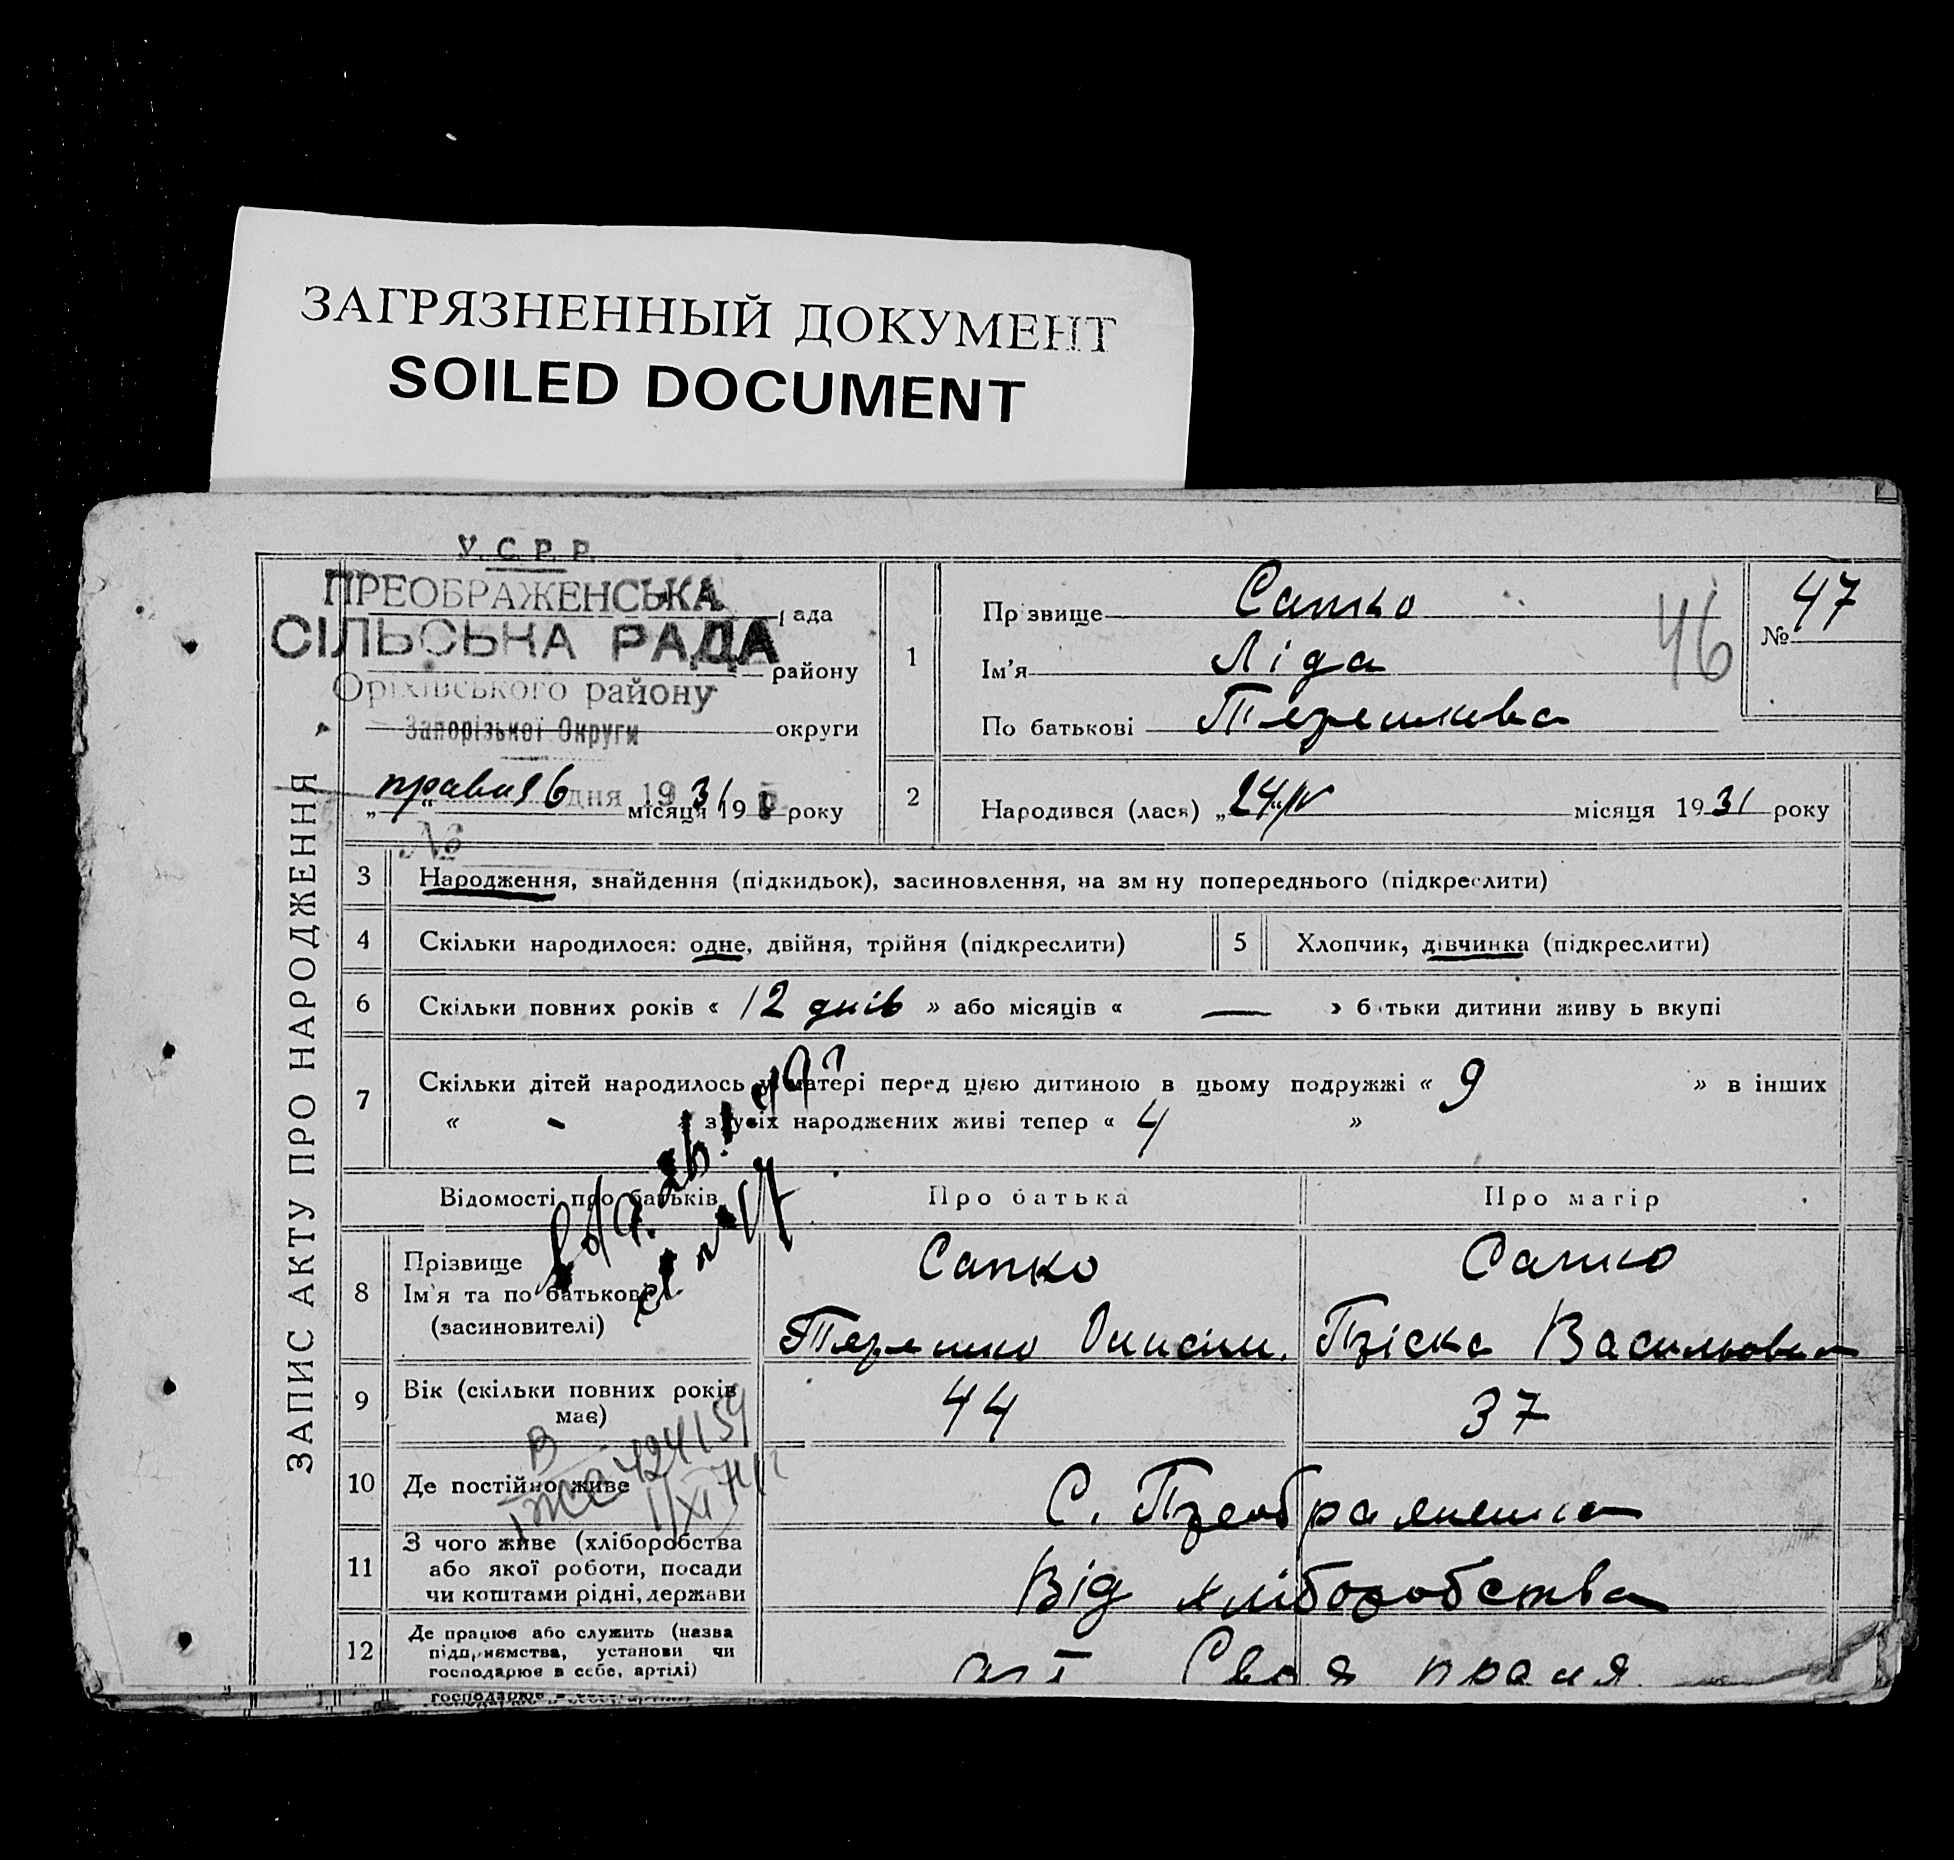 ЗАГРЯЗНЕННЫЙ ДОКУМЕНТ
SOILED DOCUMENT
У.С.Р.Р.
ПРЕОБРАЖЕНСЬКА
рада
СІЛЬСЬКА РАДА
району
Оріхівського району
Запорізької Округи
округи
правня 6 дня 1931 р
„ “ місяця 19 року
№
ЗАПИС АКТУ ПРО НАРОДЖЕННЯ
1
Пр звище Сапко
Ім’я Ліда
По батькові Терешківа
46
№ 47
2 Народився (лася) „24“/IV місяця 1931 року
3 Народження, знайдення (підкидьок), засиновлення, на зм ну попереднього (підкреслити)
4 Скільки народилося: одне, двійня, трійня (підкреслити) 5 Хлопчик, дівчинка (підкреслити)
6 Скільки повних років « 12 днів » або місяців « — » б тьки дитини живу ь вкупі
7 Скільки дітей народилось у матері перед цією дитиною в цьому подружжі « 9 » в інших
« - » з усіх народжених живі тепер « 4 »
Відомості про батьків Про батька Про матір
8 Прізвище Сапко Сапко
Ім’я та по батькові
(засиновителі) Терешко Онисім. Пріська Васильовна
9 Вік (скільки повних років має) 44 37
В
424159
10 Де постійно живе С. Преображенка
11 З чого живе (хліборобства
або якої роботи, посади
чи коштами рідні, держави
Від хліборобства
12 Де працює або служить (назва
підприємства, установи чи
господарює в себе, артілі)
Своя праця
господарює в себе, артілі)